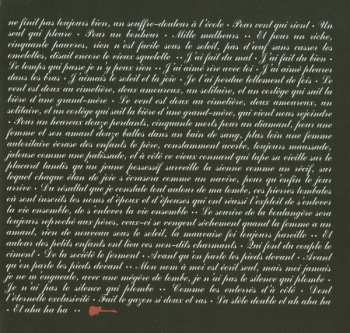 ne finit pas toujours bien, un souffre-douleur à l'école • Pour cent qui rient • Un
seul qui pleure • Pour un bonheur • Mille malheurs • • Et pour un riche,
cinquante pauvres, rien n'est facile sous le soleil, pas d'œuf sans casser les
omelettes, disait encore le vieux squelette • • J'ai fait du mal • J'ai fait du bien •
Le temps qui passe je n'y peux rien • J'ai aimé rire avec toi • J'ai aimé pleurer
dans tes bras • J'aimais le soleil et la joie • Je t'ai perdue tellement de fois • Le
vent est doux au cimetière, deux amoureux, un solitaire, et un cortège qui suit la
bière d'une grand-mère • Le vent est doux au cimetière, deux amoureux, un
solitaire, et un cortège qui suit la bière d'une grand-mère, qui vient nous rejoindre
• Pour un heureux douze pendants, cinquante morts, pour un diamant, pour une
femme et son amant douze balles dans un bain de sang, plus loin une femme
autoritaire écrase des enfants le père, constamment acerbe, toujours maussade,
jalouse comme une palissade, et à côté ce vieux connard qui tape sa vieille sur le
placard tandis qu'un jeune possessif surveille sa sienne comme un récif, sur
lequel chaque élan de joie s'écrase comme un navire, pour qui enfin le jour
arrive • Du résultat que je constate tout autour de ma tombe, ces pierres tombales
où sont inscrits les noms d'époux et d'épouses qui ont réussi l'exploit de s'enlever
la vie ensemble, de s'enlever la vie ensemble • • Le sourire de la boulangère sera
toujours reproché aux frères, ceux-ci se vengent sèchement quand la femme a un
amant, rien de nouveau sous le soleil, la mauvaise foi toujours pareille • • Et
autour des petits enfants ont lieu ces non-dits charmants • Qui font du couple le
ciment • De la société le ferment • Avant qu'on parte les pieds devant • Avant
qu'on parte les pieds devant • • Mon nom à moi est écrit seul, mais moi jamais
je ne m'engueule, avec une mégère de tombe, je n'ai pas le silence qui plombe •
Je n'ai pas le silence qui plombe • • Comme les enterrés d'à côté • Dont
l'éternelle exclusivité • Fait le gazon si doux et ras • La stèle double et ah aha ha
• Et aha ha ha • •